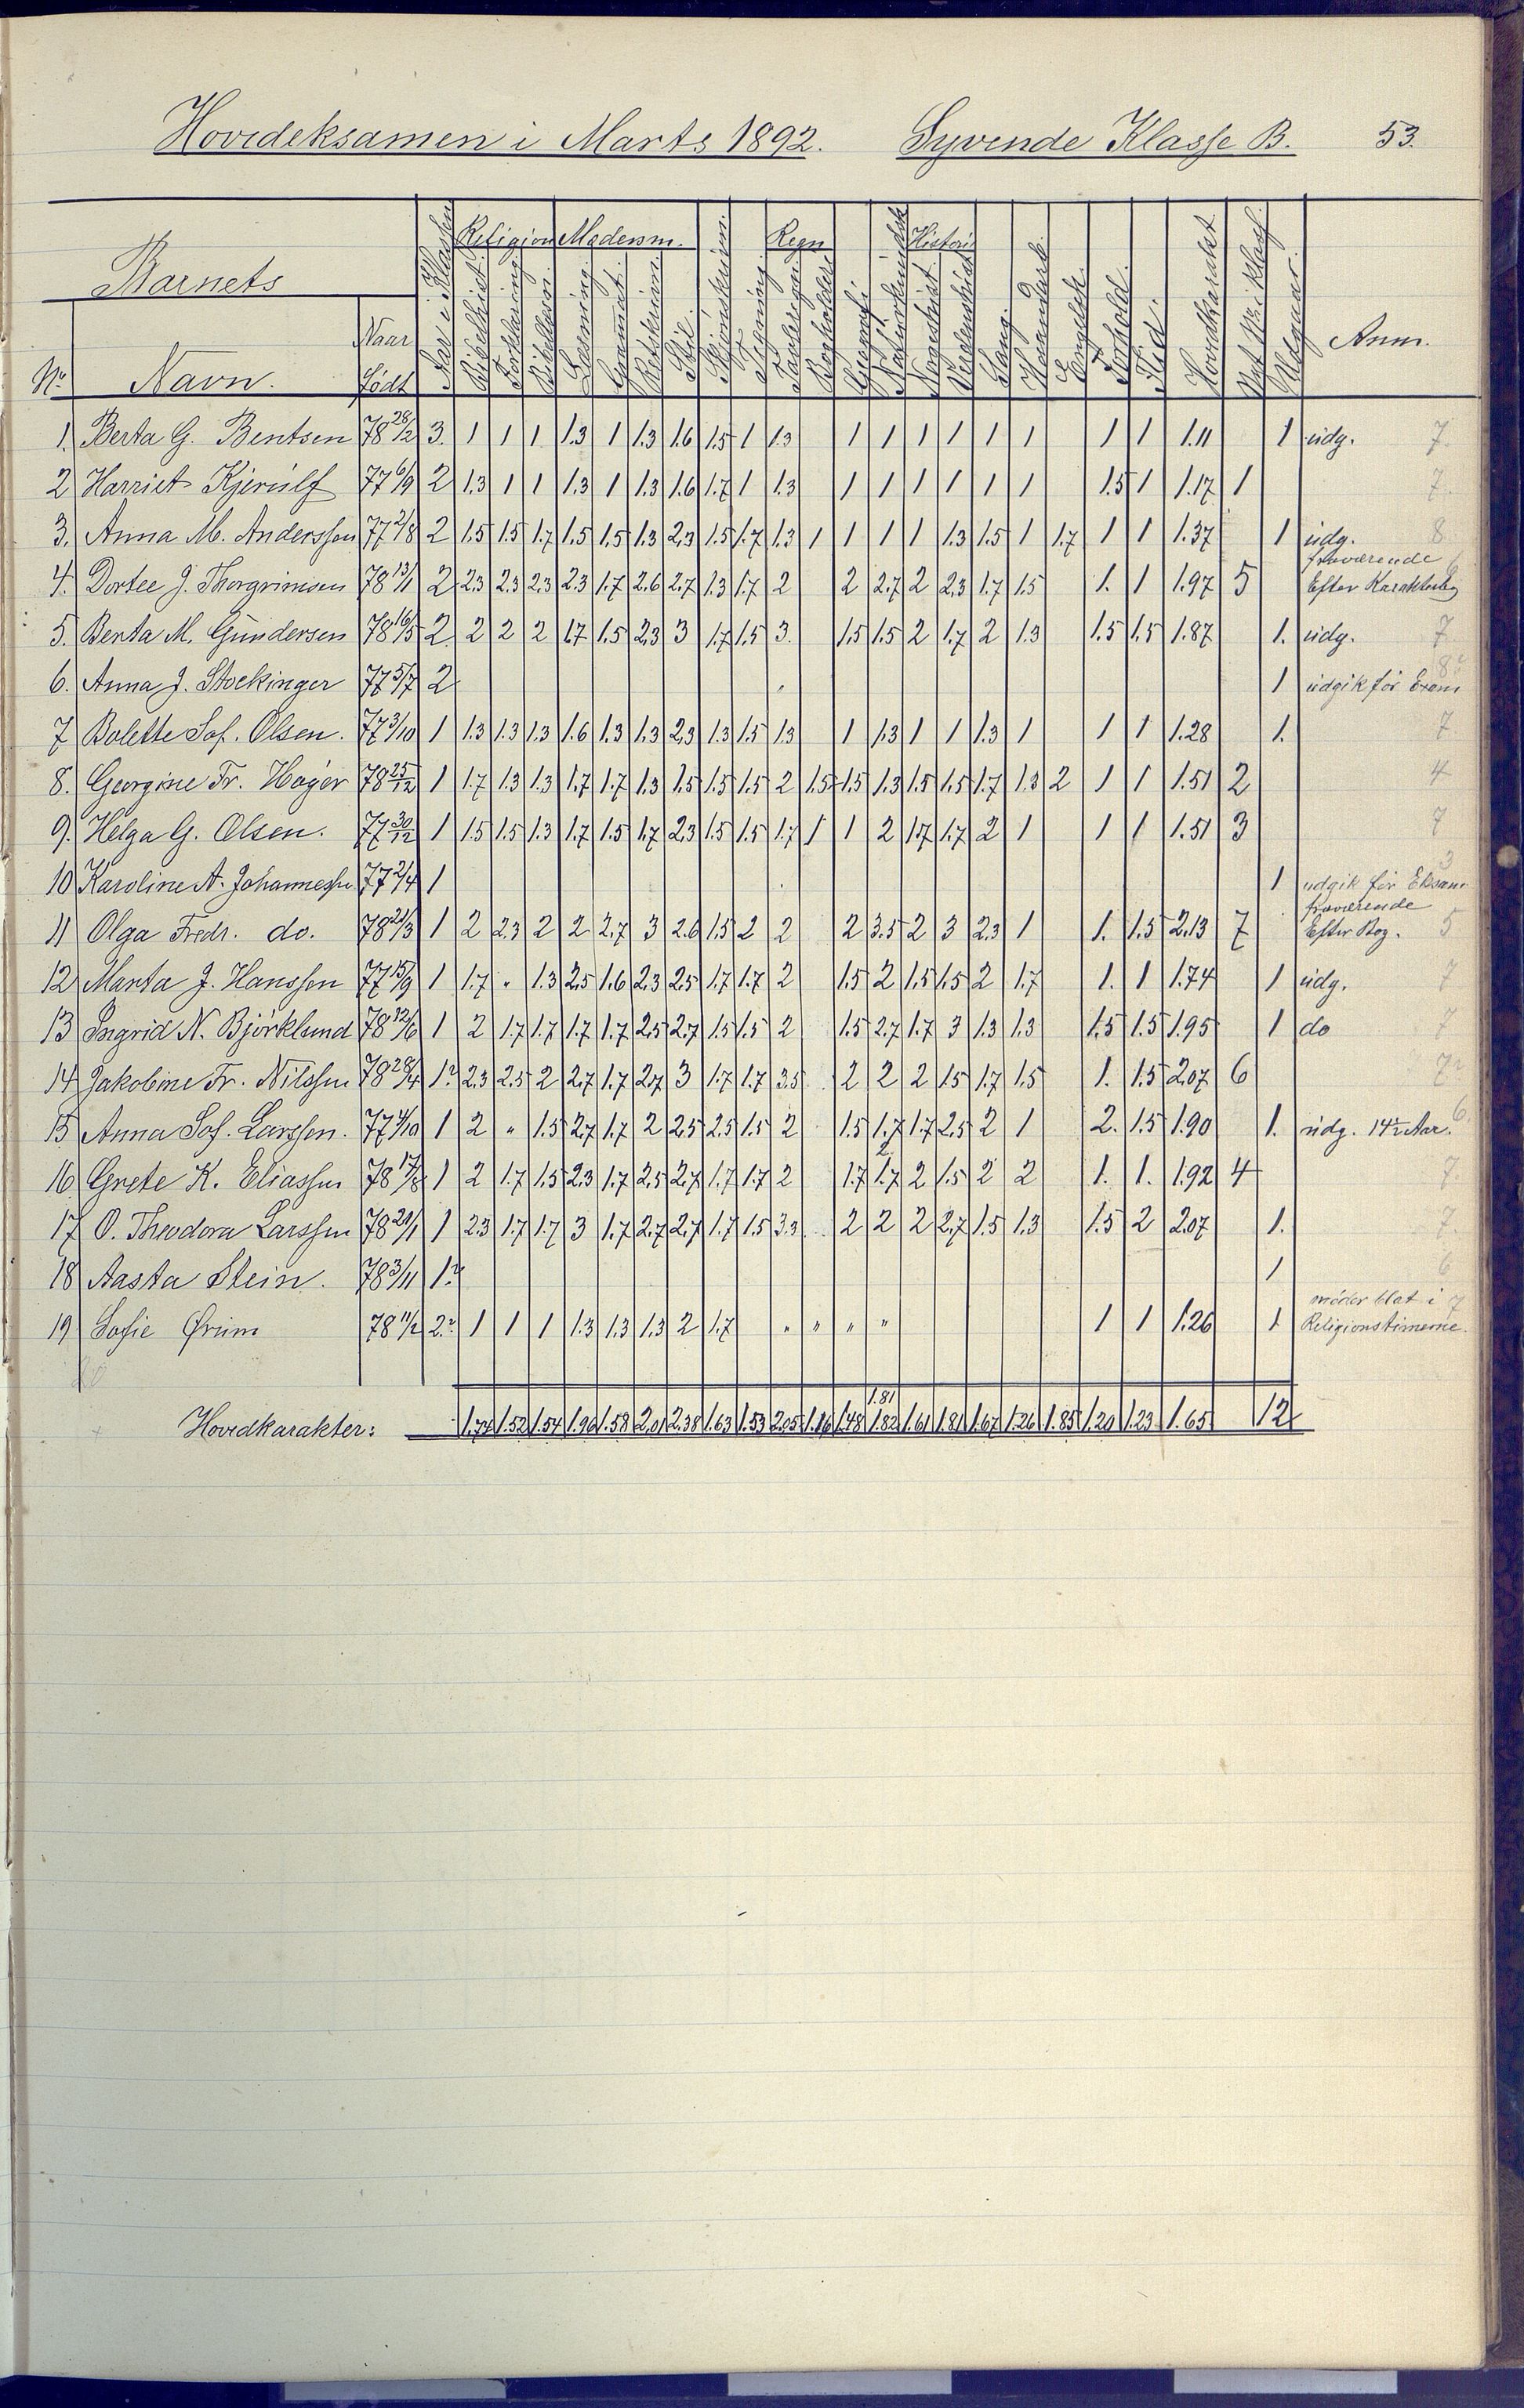 Hovedeksamen i Marts 1892. Syvende Klasse B. 53.
Barnets
Religion Modersm. Regn Histori
No Navn. Naar Født Aar i Klassen Bibelhist. Forklaring Læsning Gramat. Retskrivn. Stil. Skjönskrivn. Tegning Tavleregn. Bogholderi Geografi Norgeshist. Verdenshist. Sang. Haandarb. Engelsk. Forhold. Flid. Hovedkarakt. Udgaar. Anm.
1. Berta G. Bentsen 78 28/2 3. 1 1 1 1.3 1 1.3 1.6 1.5 1 1.3 1 1 1 1 1 1 1 1 1.11 1 udg. 7.
2 Harriet Kjerulf 77 6/9 2 1.3 1 1 1.3 1 1.3 1.6 1.7 1 1.3 1 1 1 1 1 1 1.5 1 1.17 1 7.
3. Anna M. Anderssen 77 2/8 2 1.5 1.5 1.7 1.5 1.5 1.3 2.3 1.5 1.7 1.3 1 1 1 1 1.3 1.5 1 1.7 1 1 1.37 1 udg. 8
4. Dortee J. Thorgrimsen 78 13/1 2 2.3 2.3 2.3 2.3 1.7 2.6 2.7 1.3 1.7 2 2 2.7 2 2.3 1.7 1.5 1. 1 1.97 5 fraværende Efter Karakterbog 6
5. Berta M. Gundersen 78 16/5 2. 2 2 2 1.7 1.5 2.3 3 1.7 1.5 3. 1.5 1.5 2 1.7 2 1.3 1.5 1.5 1.87 1. udg. 7
6. Anna J. Stockinger 77 5/7 2 1 udgik för Exam 8?
7 Bolette Sof. Olsen. 77 3/10 1 1.3 1.3 1.3 1.6 1.3 1.3 2.3 1.3 1.5 1.3 1 1.3 1 1 1.3 1 1 1 1.28 1. 7
8. Georgine Fr. Høyer 78 25/12 1 1.7 1.3 1.3 1.7 1.7 1.3 1.5 1.5 1.5 2 1.5 1.5 1.3 1.5 1.5 1.7 1.3 2 1 1 1.51 2 4
9. Helga G. Olsen. 77 30/12 1 1.5 1.5 1.3 1.7 1.5 1.7 2.3 1.5 1.5 1.7 1 1 2 1.7 1.7 2 1 1 1 1.51 3 7
10 Karoline A. Johannessen 77 2/4 1 1 udgik för Eksam 3
11 Olga Fredr. do. 78 21/3 1 2 2.3 2 2 2.7 3 2.6 1.5 2 2 2 3.5 2 3 2.3 1 1. 1.5 2.13 7 fraværende Efter Bog. 5
12 Marta J. Hanssen 77 15/9 1 1.7 " 1.3 2.5 1.6 2.3 2.5 1.7 1.7 2 1.5 2 1.5 1.5 2 1.7 1. 1 1.74 1 udg. 7
13 Ingrid N. Björklund 78 12/6 1 2 1.7 1.7 1.7 1.7 2.5 2.7 1.5 1.5 2 1.5 2.7 1.7 3 1.3 1.3 1.5 1.5 1.95 1 do 7
14 Jakobine Fr. Nilssen 78 28/4 1? 2.3 2.5 2 2.7 1.7 2.7 3 1.7 1.7 3.5 2 2 2 1.5 1.7 1.5 1. 1.5 2.07 6 7?
15 Anna Sof. Larssen. 77 4/10 1 2 " 1.5 2.7 1.7 2 2.5 2.5 1.5 2 1.5 1.7 1.7 2.5 2 1 2. 1.5 1.90 1. udg. 14½ Aar. 6.
16 Grete K. Eliassen 78 17/8 1 2 1.7 1.5 2.3 1.7 2.5 2.7 1.7 1.7 2 1.7 2 1.7 2 1.5 2 2 1. 1. 1.92 4 7.
17 O. Theodora Larssen 78 20/1 1 2.3 1.7 1.7 3 1.7 2.7 2.7 1.7 1.5 3.3 2 2 2 2.7 1.5 1.3 1.5 2 2.07 1. 7.
18 Aasta Stein. 78 3/11 1? 1 6
19 Sofie Ørum 78 11/2 2? 1 1 1 1.3 1.3 1.3 2 1.7 " " " " 1 1 1.26 1 möder blot i Religionstimerne. 7
20
1.81
Hovedkarakter: 1.74 1.52 1.54 1.96 1.58 2.01 2.38 1.63 1.53 2.05 1.16 1.48 1.82 1.61 1.81 1.67 1.26 1.85 1.20 1.23 1.65 12